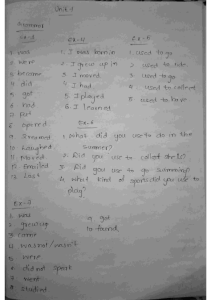 Unit-1
Grammar
Ex-2
1. was
2. were
3. became
4. did
5. got
6. had
7. put
8. opened
9. Stormed
10. Laughed
11. Moved
12. Emailed
13. Lost
Ex-3
1. was
3. came
5. were
6. did not speak
7. went
8. Studied
9. got
10. found
Ex-4
1. I was born
2. I grew up in
3. I moved
4. I had
5. I played
6. I learned
Ex-5
1. used to go
2. used to
3. used to go
4. used to collect
5. used to have
Ex-6
1. What did you use to do on the
summer?
2. Did you use to collect the
3. Did you use to go swimming?
4. what kind of sports did you use to
play?